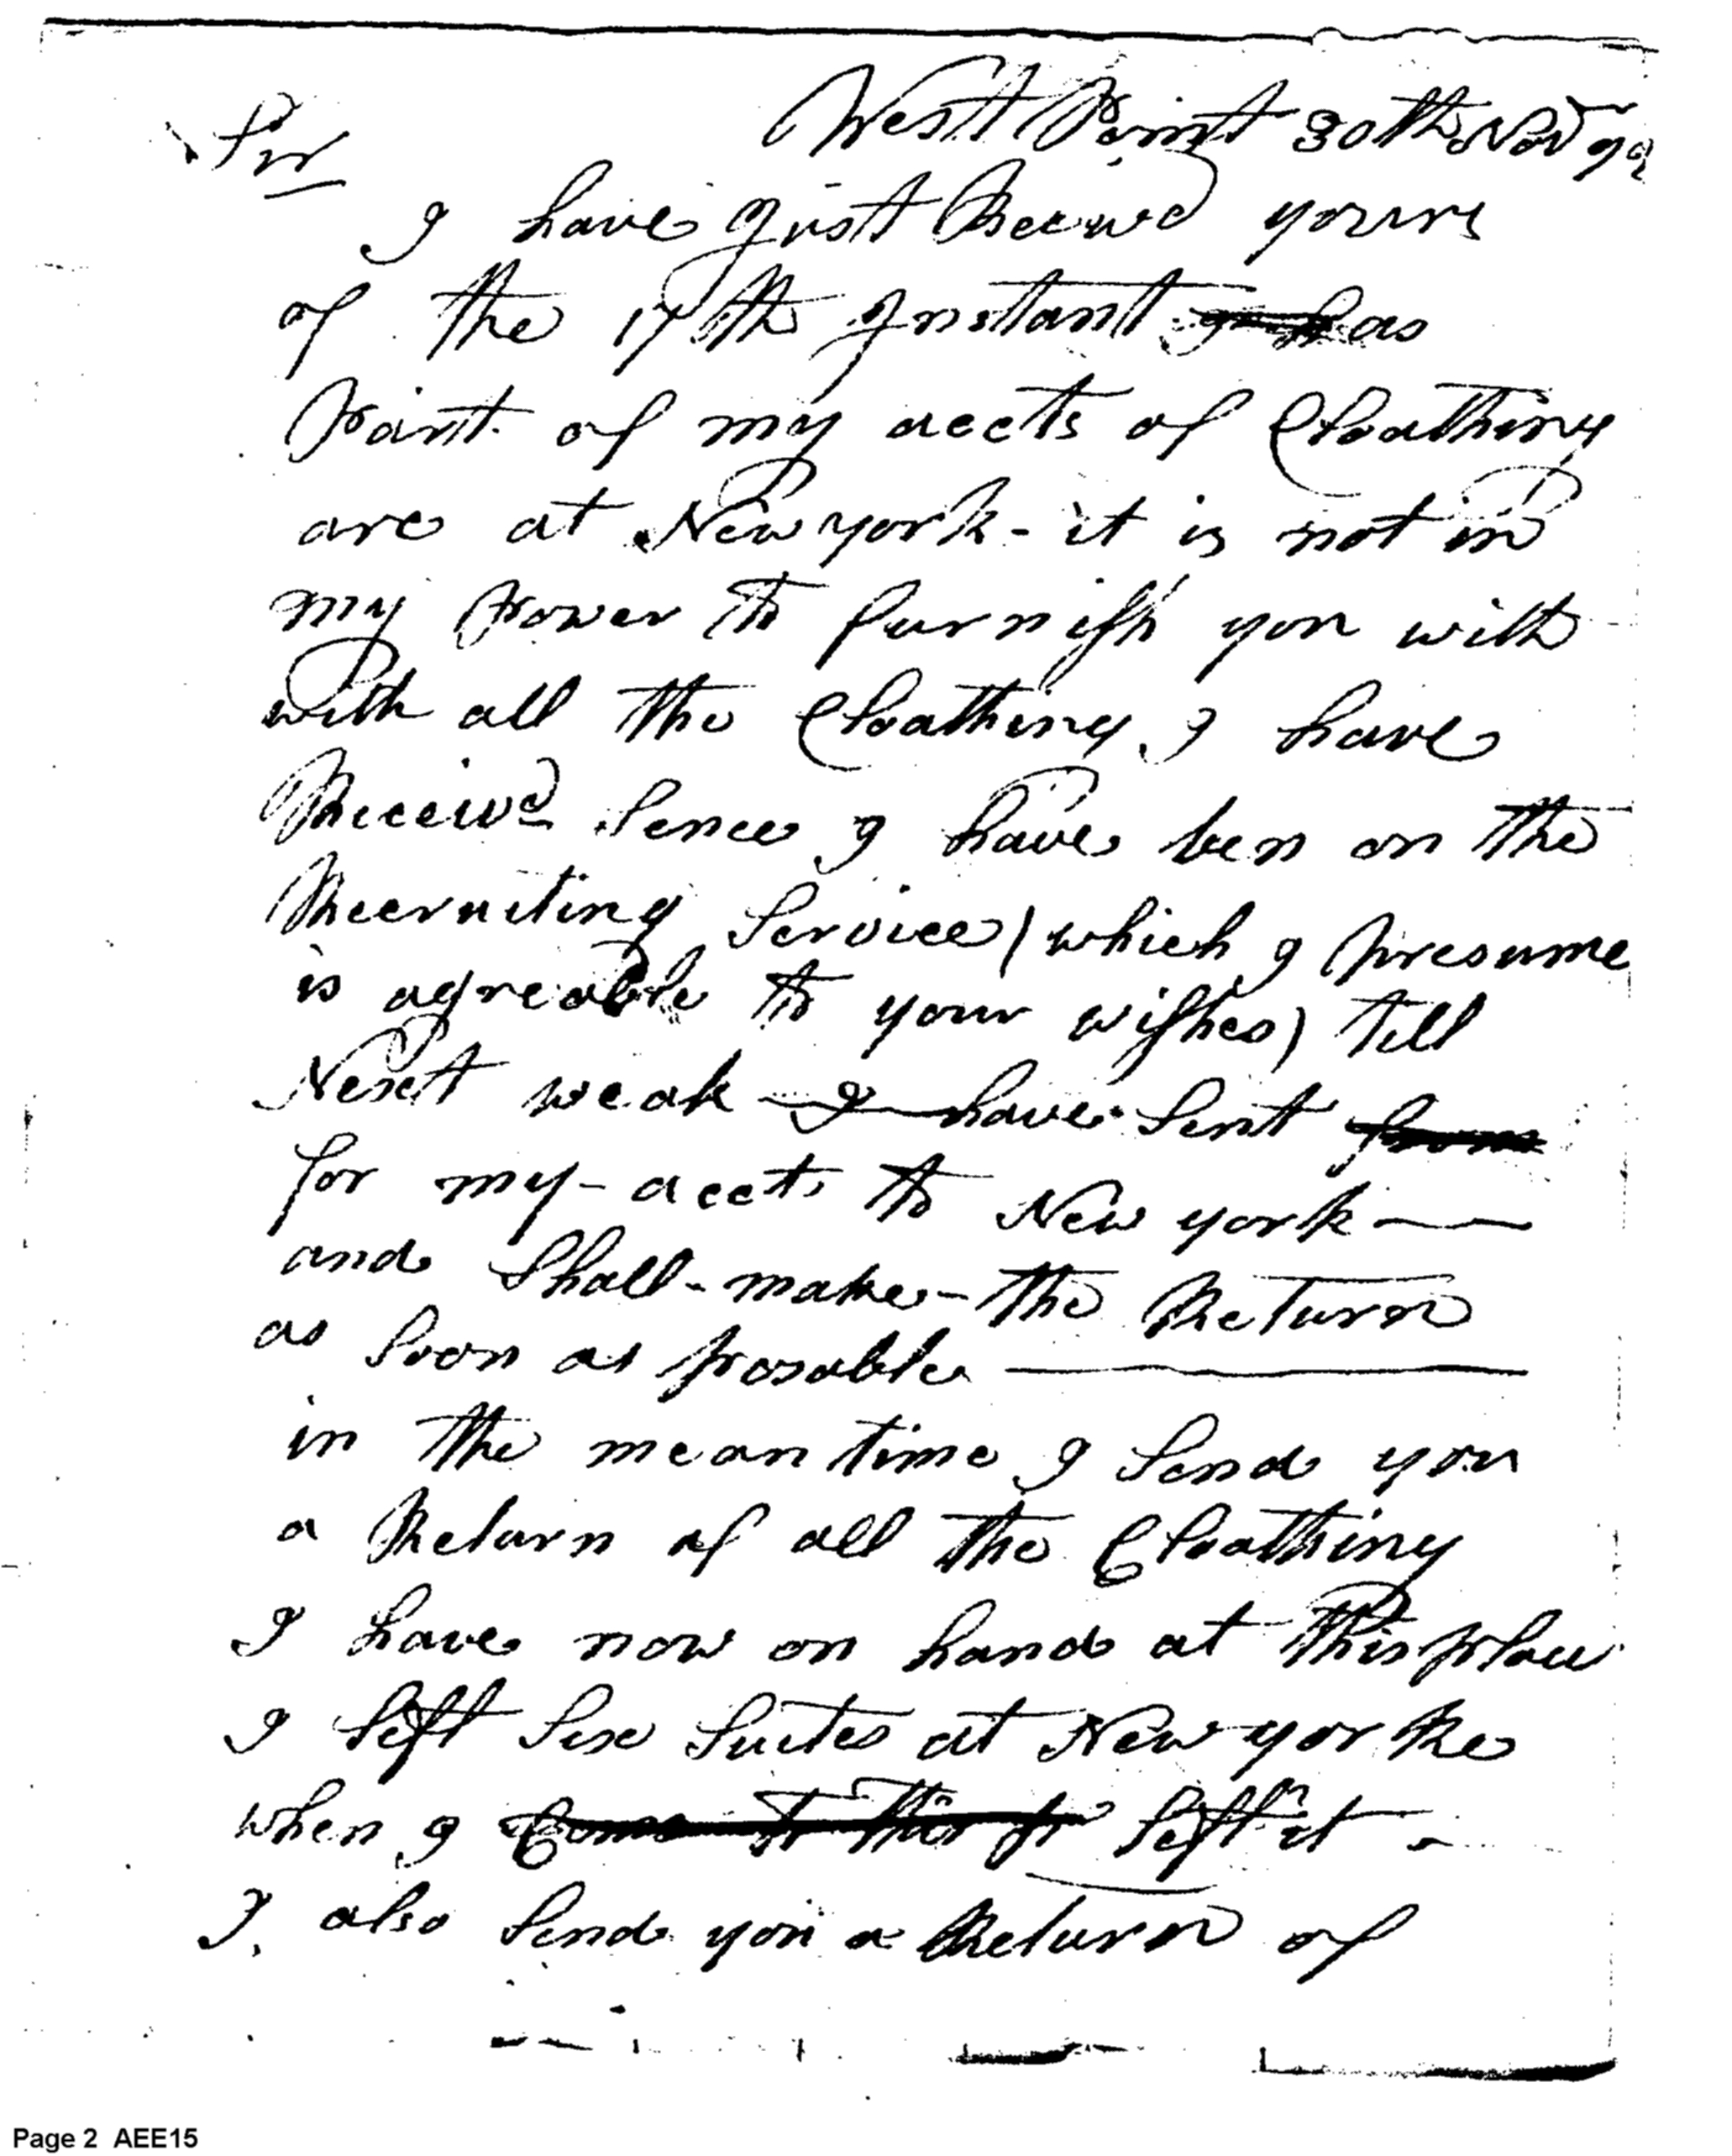 West Point 30th Nov 92
Sir
I have Just Receivd yours
of the 17th Instant as
Part of my accts of Cloathing
are at New york - it is not in
my Power to furnish you with
with all the Cloathing I have
Receivd Sence I have ben on the
Recruiting Service (which I presume
is agreable to your wishes) till
Next weak - I have Sent from
for my - acct to New york —
and Shall - make - the Return
as Soon as posable —
in the mean time I Send you
a Return of all the Cloathing
I have now on hand at this place
I left Six Suites at New yorke
when I Come to this left it -
I also Send you a Return of
Page 2 AEE15